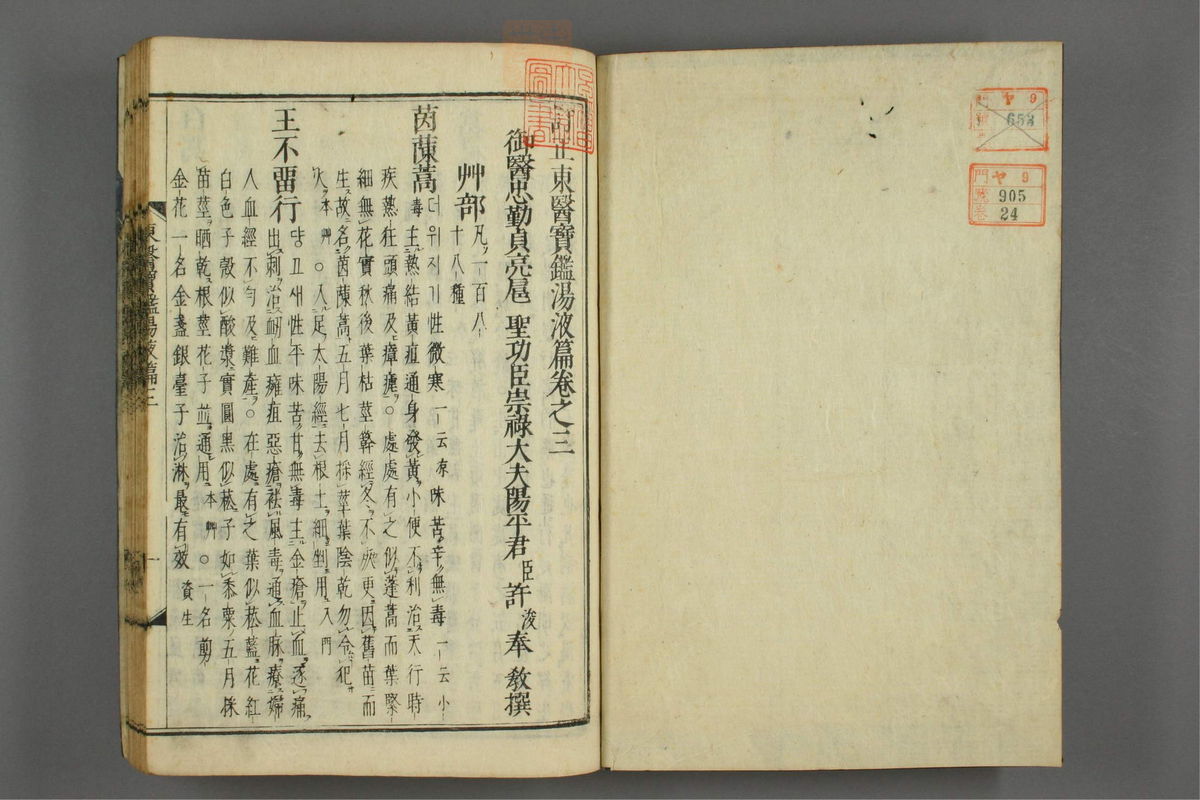 門 ヤ 9
653
門 ヤ 9
號 905
卷 24
訂正東醫寶鑑湯液篇卷之三
御醫忠勤貞亮扈 聖功臣崇祿大夫陽平君 臣 許 浚 奉 敎撰
艸部 凡一百八十八種
茵蔯蒿 더위지기性微寒一云凉味苦辛無毒一云小
毒主熱結黃疸通身發黃小便不利治天行時
疾熱狂頭痛及瘴瘧○處處有之似蓬蒿而葉緊
細無花實秋後葉枯莖簳經冬不死更因舊苗而
生故名茵蔯蒿五月七月採莖葉陰乾勿令犯
火本艸○入足太陽經去根土細剉用入門
王不留行 댱고새性平味苦甘無毒主金瘡止血逐痛
出刺治衄血癰疽惡瘡祛風毒通血脉療婦
人血經不勻及難産○在處有之葉似菘藍花紅
白色子殼似酸漿實圓黑似菘子如黍粟五月採
苗莖晒乾根莖花子並通用本艸○一名剪
金花一名金盞銀臺子治淋最有效資生
東醫寶鑑湯液篇三 一